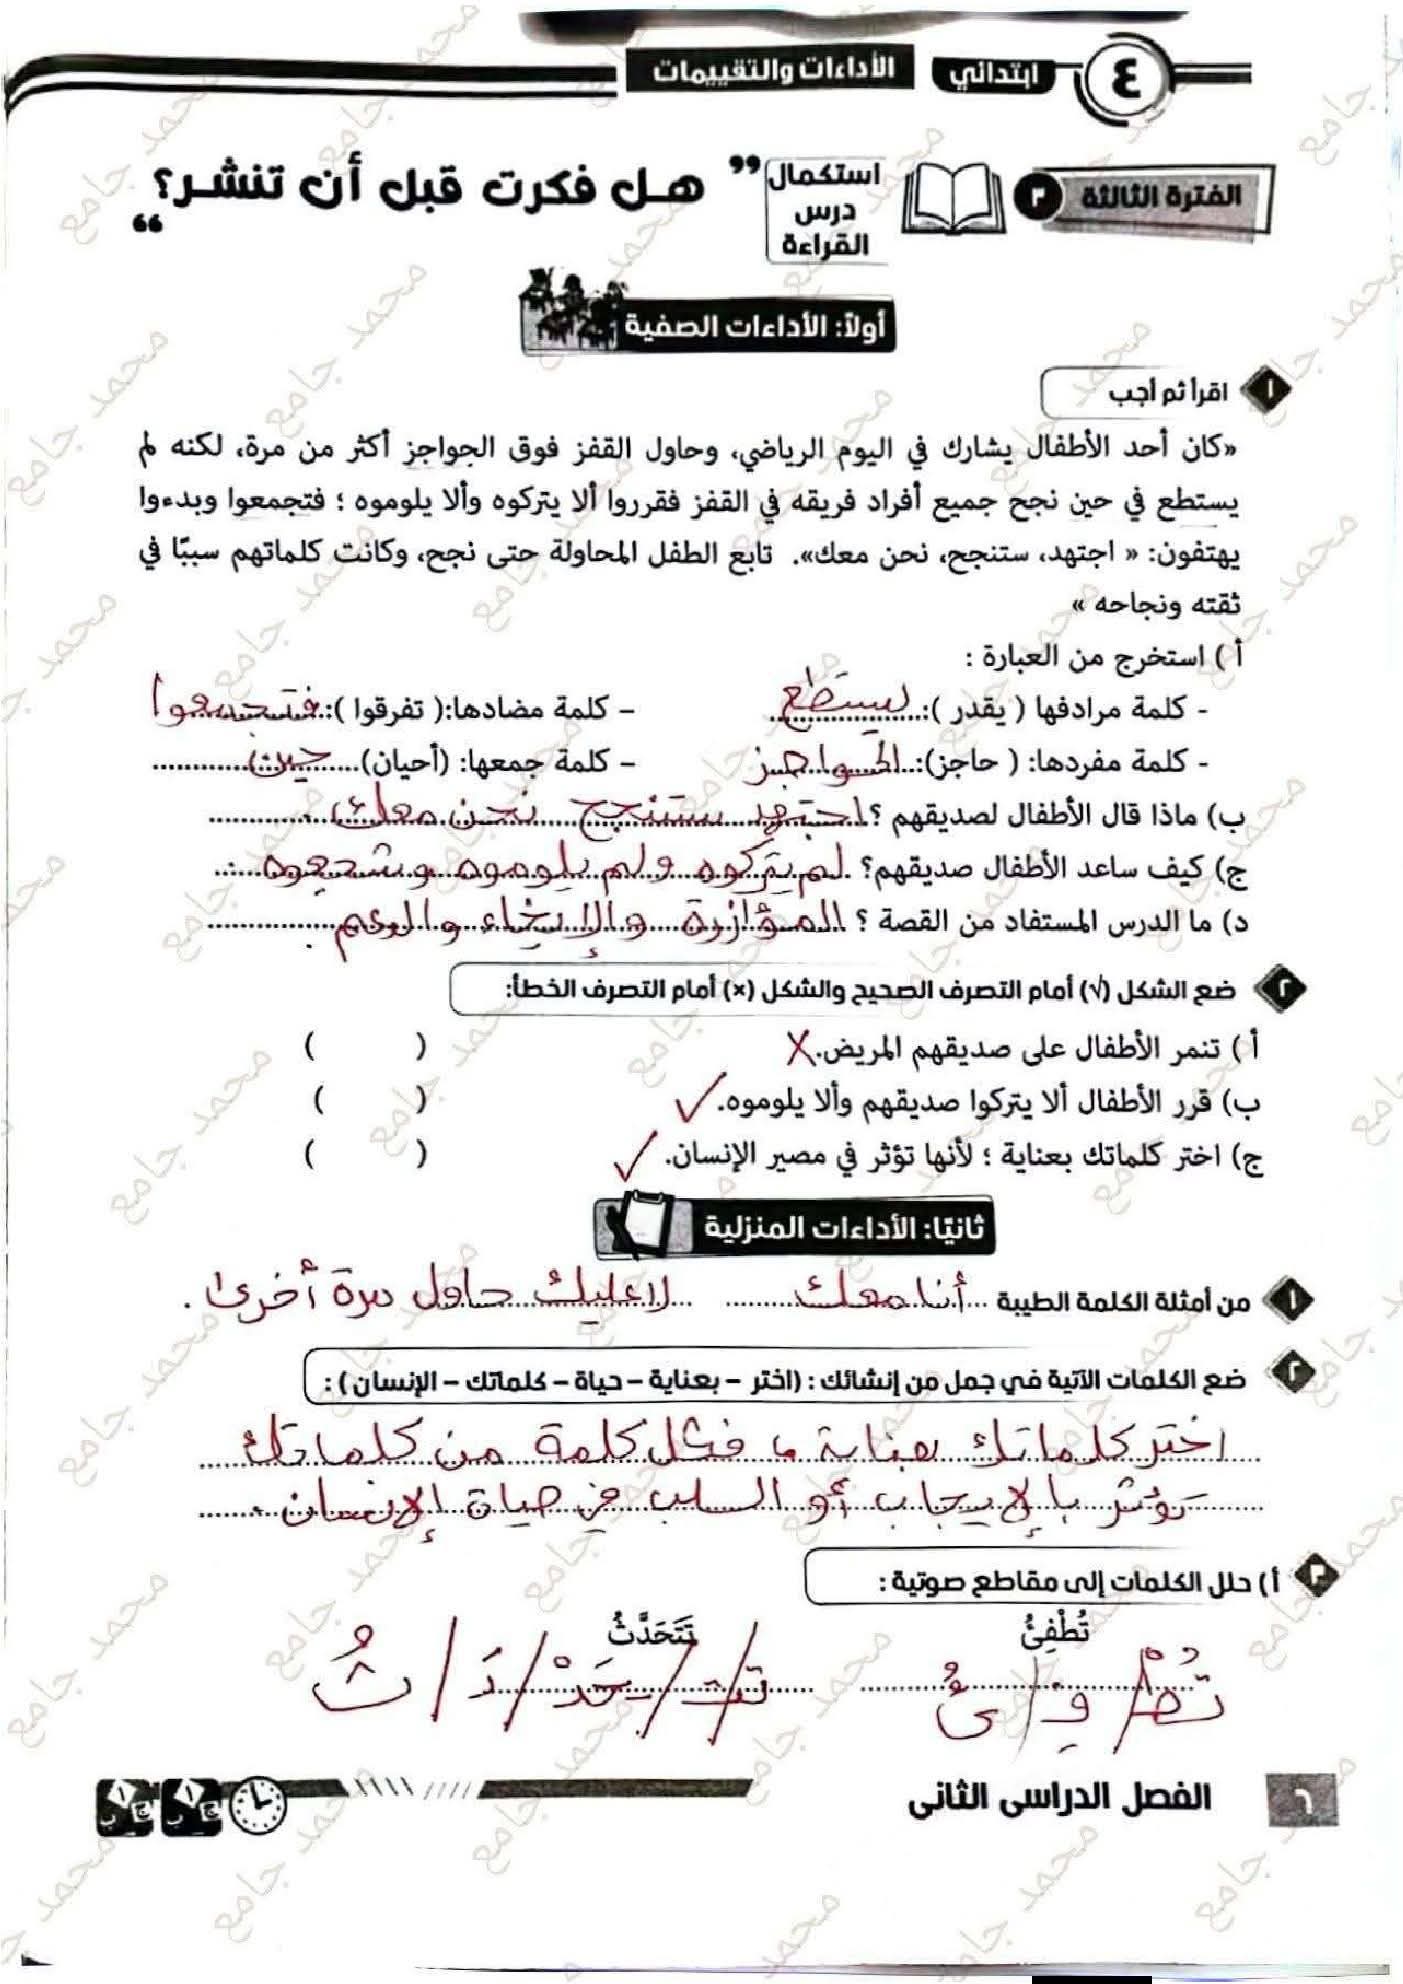 ٤ ابتدائي الأداءات والتقييمات
الفترة الثالثة ٣ استكمال درس القراءة " هل فكرت قبل أن تنشر؟ "
أولاً: الأداءات الصفية
١ اقرأ ثم أجب
«كان أحد الأطفال يشارك في اليوم الرياضي، وحاول القفز فوق الحواجز أكثر من مرة، لكنه لم
يستطع في حين نجح جميع أفراد فريقه في القفز فقرروا ألا يتركوه وألا يلوموه ؛ فتجمعوا وبدءوا
يهتفون: « اجتهد، ستنجح، نحن معك». تابع الطفل المحاولة حتى نجح، وكانت كلماتهم سببًا في
ثقته ونجاحه »
أ ) استخرج من العبارة :
- كلمة مرادفها ( يقدر ): يستطع – كلمة مضادها:( تفرقوا ): فتجمعوا
- كلمة مفردها: ( حاجز): الحواجز – كلمة جمعها: (أحيان) حين
ب) ماذا قال الأطفال لصديقهم ؟ اجتهد ستنجح نحن معك .
ج) كيف ساعد الأطفال صديقهم؟ لم يتركوه ولم يلوموه وشجعوه
د) ما الدرس المستفاد من القصة ؟ المؤازرة والإيخاء والدعم .
٢ ضع الشكل (√) أمام التصرف الصحيح والشكل (×) أمام التصرف الخطأ:
أ ) تنمر الأطفال على صديقهم المريض. X ( )
ب) قرر الأطفال ألا يتركوا صديقهم وألا يلوموه. ✓ ( )
ج) اختر كلماتك بعناية ؛ لأنها تؤثر في مصير الإنسان. ✓ ( )
ثانيًا: الأداءات المنزلية
١ من أمثلة الكلمة الطيبة أنا معك لا عليك حاول مرة أخرى .
٢ ضع الكلمات الآتية في جمل من إنشائك : (اختر – بعناية – حياة – كلماتك – الإنسان) :
اختر كلماتك بعناية ، فكل كلمة من كلماتك
تؤثر بالإيجاب أو السلب في حياة الإنسان .
٣ أ) حلل الكلمات إلى مقاطع صوتية :
تُطْفِئُ تَتَحَدَّثُ
تُطْ / فِ / ئُ تَ / تَ / حَدْ / دَ / ثُ
٦ الفصل الدراسى الثانى
محمد جامع